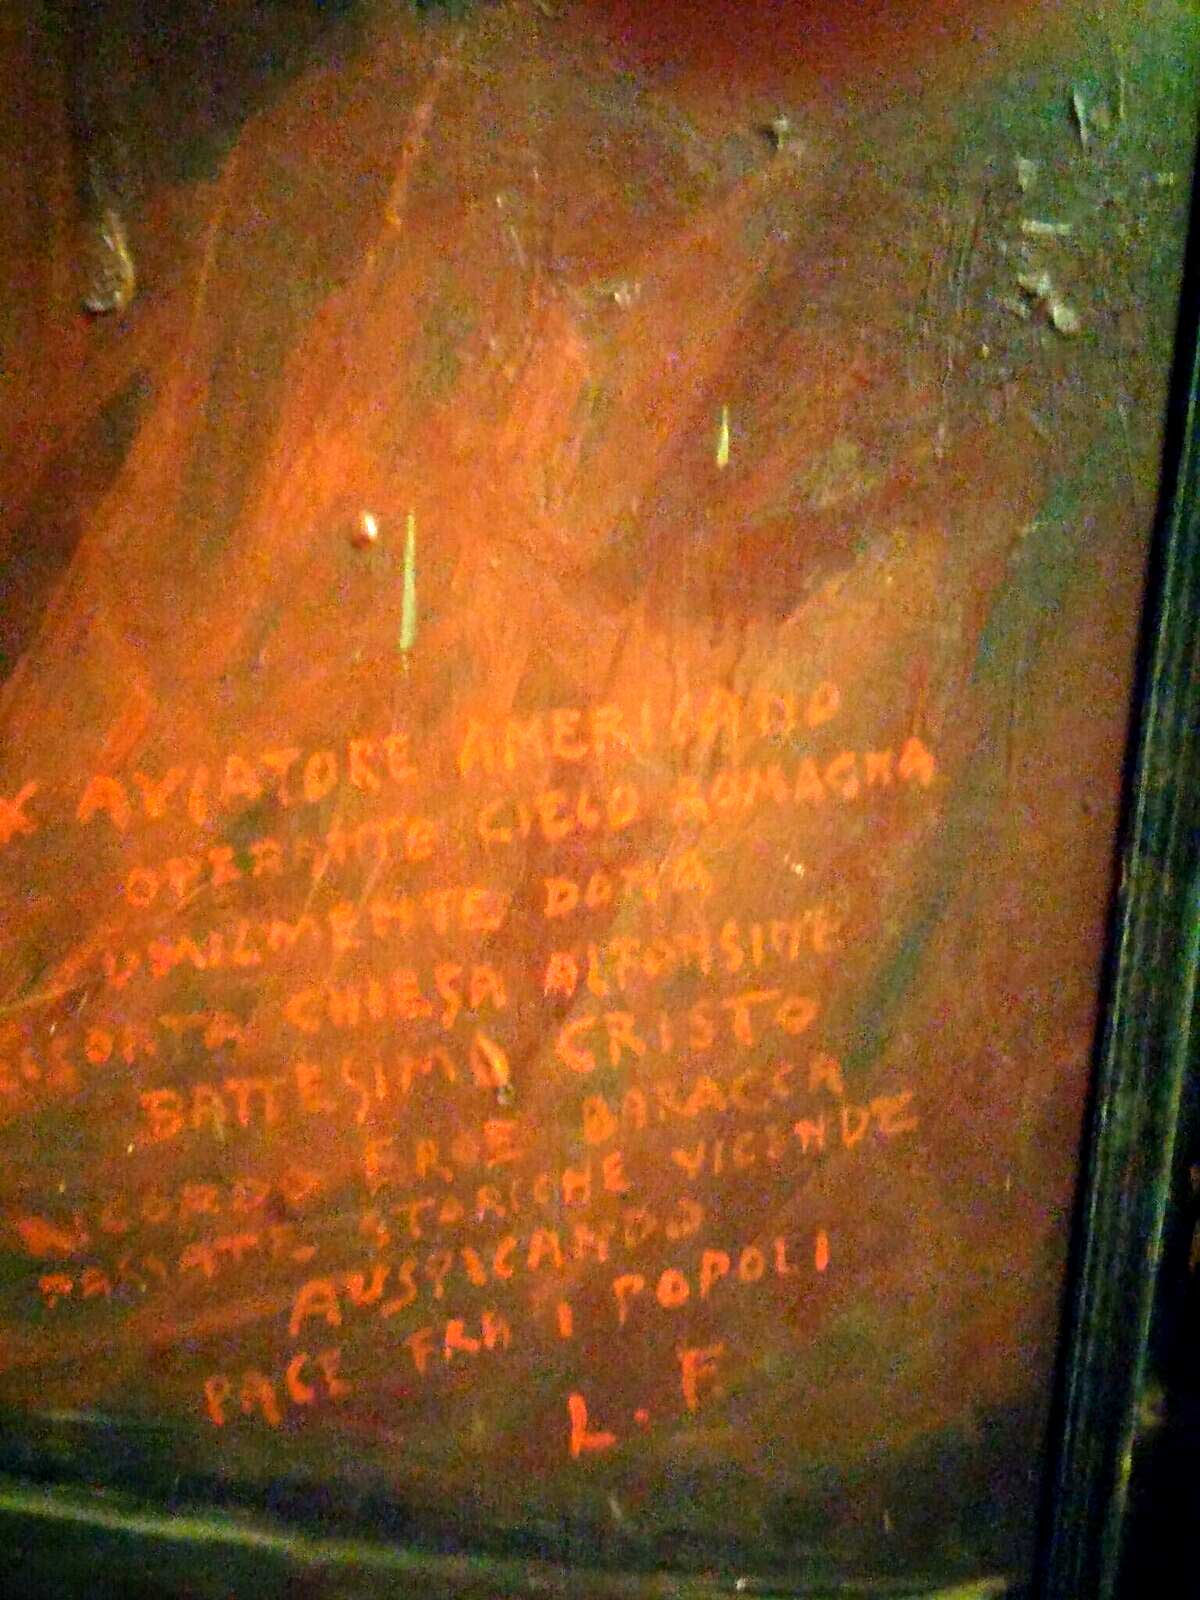 X AVIATORE AMERICANO
OPERANTE CIELO ROMAGNA
UMILMENTE DONA
RISORTA CHIESA ALFONSINE
BATTESIMO CRISTO
RICORDO EROE BARACCA
PASSATE STORICHE VICENDE
AUSPICANDO
PACE FRA I POPOLI
L. F.